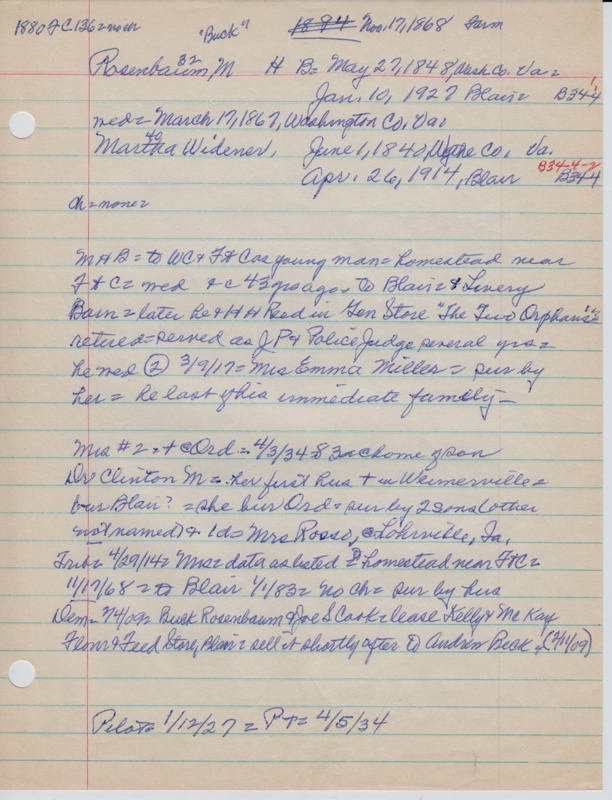 1880 Ft C 136 = no ch
"Buck"
1894 Nov. 17, 1868 Farm
Rosenbaum, M H B = May 27, 1848, Wash Co. Va =
32
Jan. 10, 1927 Blair = B34-4
1
med = March 17, 1867, Washington Co, Va =
Martha Widener, June 1, 1840, Wythe Co, Va.
40
B34-4-2
Apr. 26, 1914, Blair B34-4
ch = none =
MHB = to WC & Ft C as young man = homestead near
Ft C = med + c 43 yrs ago, to Blair = & Livery
Barn = later he & H H Reed in Gen Store "The Two Orphans" =
retired = served as J P & Police Judge several yrs =
he med (2) 3/9/17 = Mrs Emma Miller = sur by
her = he last of his immediate family =
Mrs #2 = + @ Ord = 4/3/34 83 @ home of son
Dr Clinton M = her first hus + in Weimerville =
bur Blair? = she bur Ord = sur by 2 sons (other
not named) & 1d = Mrs Rosse, @ Lohrville, Ia.
Trib = 4/29/14 = Mrs = data as listed = homestead near Ft C =
11/17/68 = to Blair 1/1/83 = no ch = sur by hus
Dem = 7/4/09 = Buck Rosenbaum & Joe S Cook = lease Kelly & McKay
Flour & Feed Store, Blair = sell it shortly after to Andrew Beck = (7/11/09)
Pilot = 1/12/27 = P T = 4/5/34